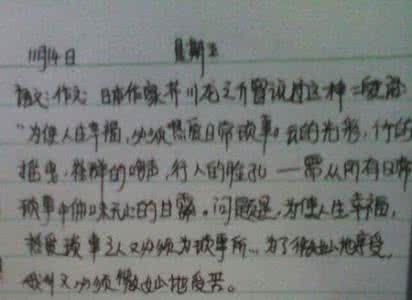 11月14日 星期五
语文:作文:日本作家芥川龙之介曾说过这种二段话
"为使人生幸福,必须热爱日常琐事。云的光彩,竹的
摇曳,雀群的鸣声,行人的脸孔——需从所有日常
琐事中体味无上的甘露。问题是,为使人生幸福,
热爱琐事之人又必须为琐事所…为了微妙地享受,
我们又必须微妙地受苦。